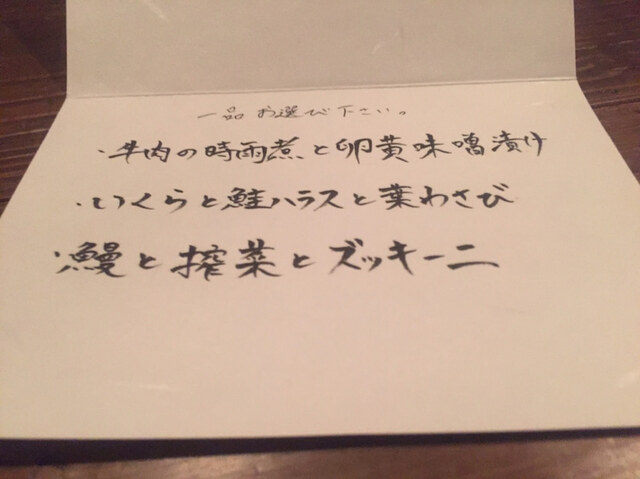 一品お選び下さい。
・牛肉の時雨煮と卵黄味噌漬け
・いくらと鮭ハラスと葉わさび
・鰻と搾菜とズッキーニ